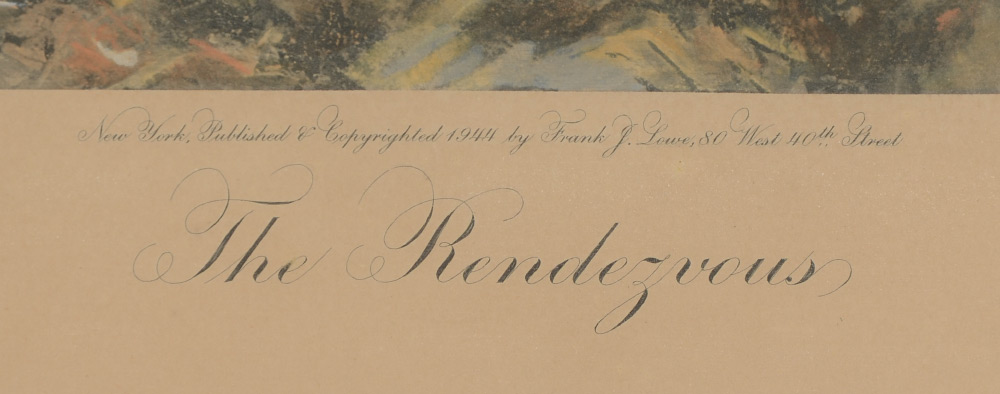 New York, Published & Copyrighted 1944 by Frank J. Lowe, 80 West 40th. Street
The Rendezvous